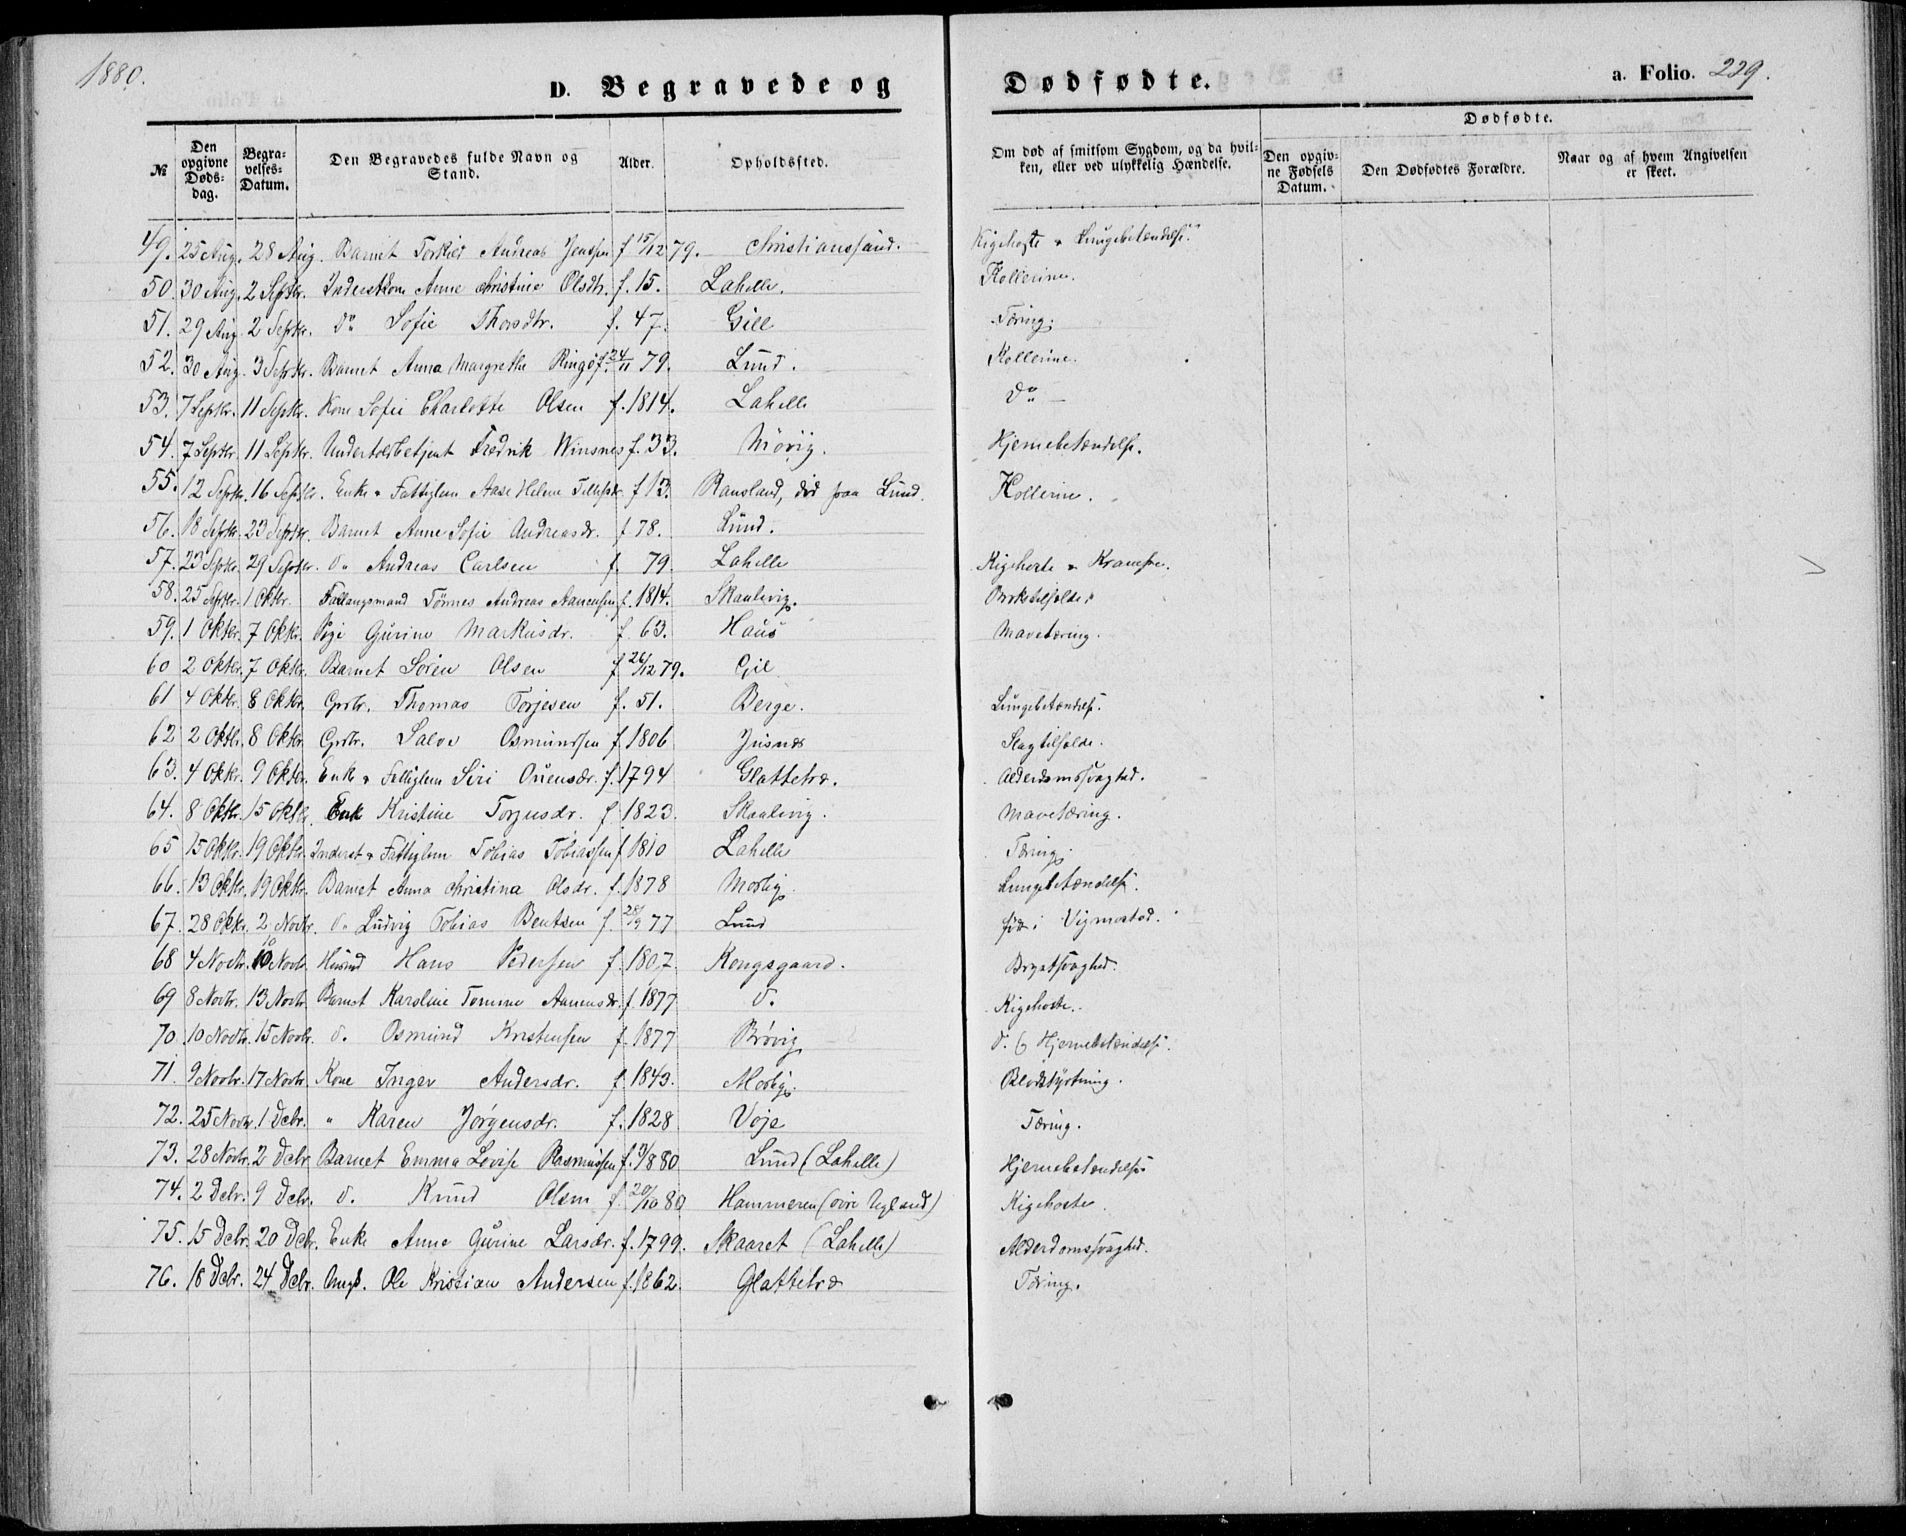 1880.
D. Begravede og Dødfødte.
a. Folio. 229.
№
Den opgivne Døds-dag.
Begra-velses-Datum.
Den Begravedes fulde Navn og Stand.
Alder.
Opholdssted.
Om død af smitsom Sygdom, og da hvil-ken, eller ved ulykkelig Hændelse.
Dødfødte.
Den opgiv-ne Fødsels Datum.
Den Dødfødtes Forældre.
Naar og af hvem Angivelsen er skeet.
49. 25 Aug. 28 Aug. Barnet Torkild Andreas Jenssen f 15/12 79. Christianssand. Kigehoste & Lungebetændelse.
50. 30 Aug. 2 Septbr. Inderstkone Anne Christine Olsdtr. f. 15. Lahelle. Kollerine.
51. 29 Aug. 2 Septbr. do Sofie Thorsdtr. f. 47. Gill Tæring.
52. 30 Aug. 3 Septbr. Barnet Anna Margrethe Ringø f. 24/11 79. Lund. Kollerine.
53. 7 Septbr. 11 Septbr. Kone Sofie Charlotte Olsen f. 1814. Lahelle do
54. 7 Septbr. 11 Septbr. Undertoldbetjent Fredrik Winsnes f. 33. Møvig. Hjernebetændelse.
55. 12 Septbr. 16 Septbr. Enke & Fattiglem Aase Helene Tellefsdr. f 13. Ransland, død paa Lund. Kollerine.
56. 18 Septbr. 23 Septbr. Barnet Anne Sofie Andreasdr. f 78. Lund.
57. 23 Septbr. 29 Septbr. do Andreas Carlsen f. 79. Lahelle Kigehoste & Krampe.
58. 25 Septbr. 1 Oktbr. Tønnes Andreas Aanensen f. 1814. Skaalevig.
59. 1 Oktbr. 7 Oktbr. Pige Gurine Markusdr. f. 63. Haus Mavetæring.
60 2 Oktbr. 7 Oktbr. Barnet Søren Olsen f 26/12 79. Gil
61 4 Oktbr. 8 Oktbr. Grbr. Thomas Torjesen f. 51. Berge. Lungebetændelse.
62 2 Oktbr. 8 Oktbr. Grbr. Salve Osmundsen f 1806 Jusnes Slagtilfælde.
63. 4 Oktbr. 9 Oktbr. Enke & Fattiglem Siri Ouensdr. f. 1794 Glattetræ. Alderdomssvaghed.
64. 8 Oktbr. 15 Oktbr. Enk Kristine Torjusdr. f. 1823. Skaalevig. Mavetæring.
65 15 Oktbr. 19 Oktbr. Inderst & Fattiglem Tobias Tobiassen f 1810 Lahelle Tæring.
66. 13 Oktbr. 19 Oktbr. Barnet Anna Christina Olsdr. f. 1878 Mosby. Lungebetændelse.
67. 28 Oktbr. 2 Novbr. do Ludvig Tobias Bentsen f. 28/9 77 Lund født i Vigmostad.
68 4 Novbr. 10 Novbr. Husmd Hans Pedersen f. 1807. Kongsgaard. Brystsvaghed.
69 8 Novbr. 13 Novbr. Barnet Karoline Tomine Aanensdr. f. 1877 do Kigehoste.
70. 10 Novbr. 15 Novbr. do Osmund Kristensen f. 1877 Brøvig do og Hjernebetændelse.
71. 9 Novbr. 17 Novbr. Kone Inger Andersdr. f. 1843. Mosby. Blodstyrtning.
72. 25 Novbr. 1 Debr. " Karen Jørgensdr. f. 1828 Voje Tæring.
73. 28 Novbr. 2 Debr. Barnet Emma Lovise Rasmussen f. /8 80 Lund (Lahelle) Hjernebetændelse
74. 2 Debr. 9 Debr. do Knud Olsen f. 20/10 80 Hammeren (øvre Ugland) Kigehoste
75. 15 Debr. 20 Debr. Enke Anne Gurine Larsdr. f. 1799. Skaaret (Lahelle) Alderdomssvaghed.
76. 18 Debr. 24 Debr. Ungk. Ole Kristian Andersen f. 1862. Glattetræ Tæring.